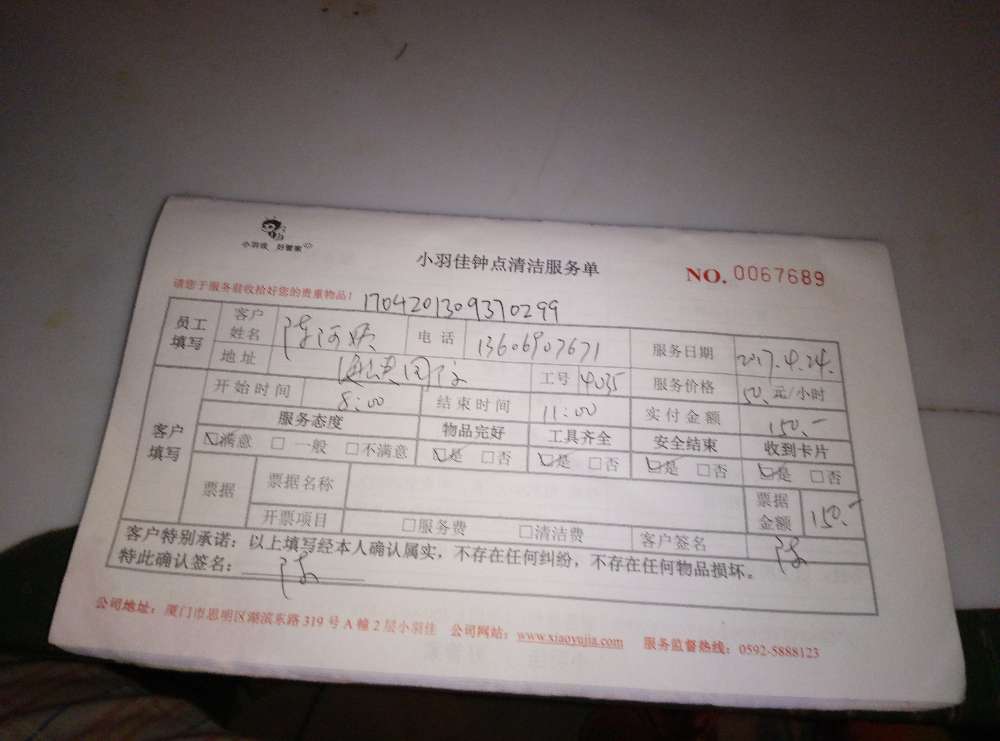 小羽佳 好管家
小羽佳钟点清洁服务单
NO. 0067689
请您于服务前收拾好您的贵重物品！ 1704201309370299
员工填写 客户姓名 陈 电话 13606907671 服务日期 2017.4.24.
地址 工号 4035 服务价格 50. 元/小时
客户填写 开始时间 8:00 结束时间 11:00 实付金额 150.-
服务态度 物品完好 工具齐全 安全结束 收到卡片
☑满意 □一般 □不满意 ☑是 □否 ☑是 □否 ☑是 □否 ☑是 □否
票据 票据名称 票据金额 150.-
开票项目 □服务费 □清洁费 客户签名 陈
客户特别承诺：以上填写经本人确认属实，不存在任何纠纷，不存在任何物品损坏。
特此确认签名： 陈
公司地址：厦门市思明区湖滨东路 319 号 A 幢 2 层小羽佳 公司网站：www.xiaoyujia.com 服务监督热线：0592-5888123